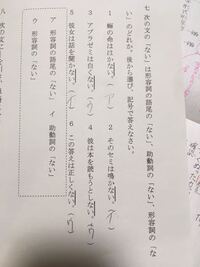 七 次の文の「ない」は形容詞の語尾の「ない」、助動詞の「ない」、形容詞の「な
い」のどれか。後から選び、記号で答えなさい。
1 蝉の命ははかない。(ア) 2 そのセミは鳴かない。(イ)
3 アブラゼミは白くない。(ウ) 4 彼は本を読もうとしない。( )
5 彼女は話を聞かない。(イ) 6 この答えは正しくない。(ウ)
ア 形容詞の語尾の「ない」 イ 助動詞の「ない」
ウ 形容詞の「ない」
八 次の文に